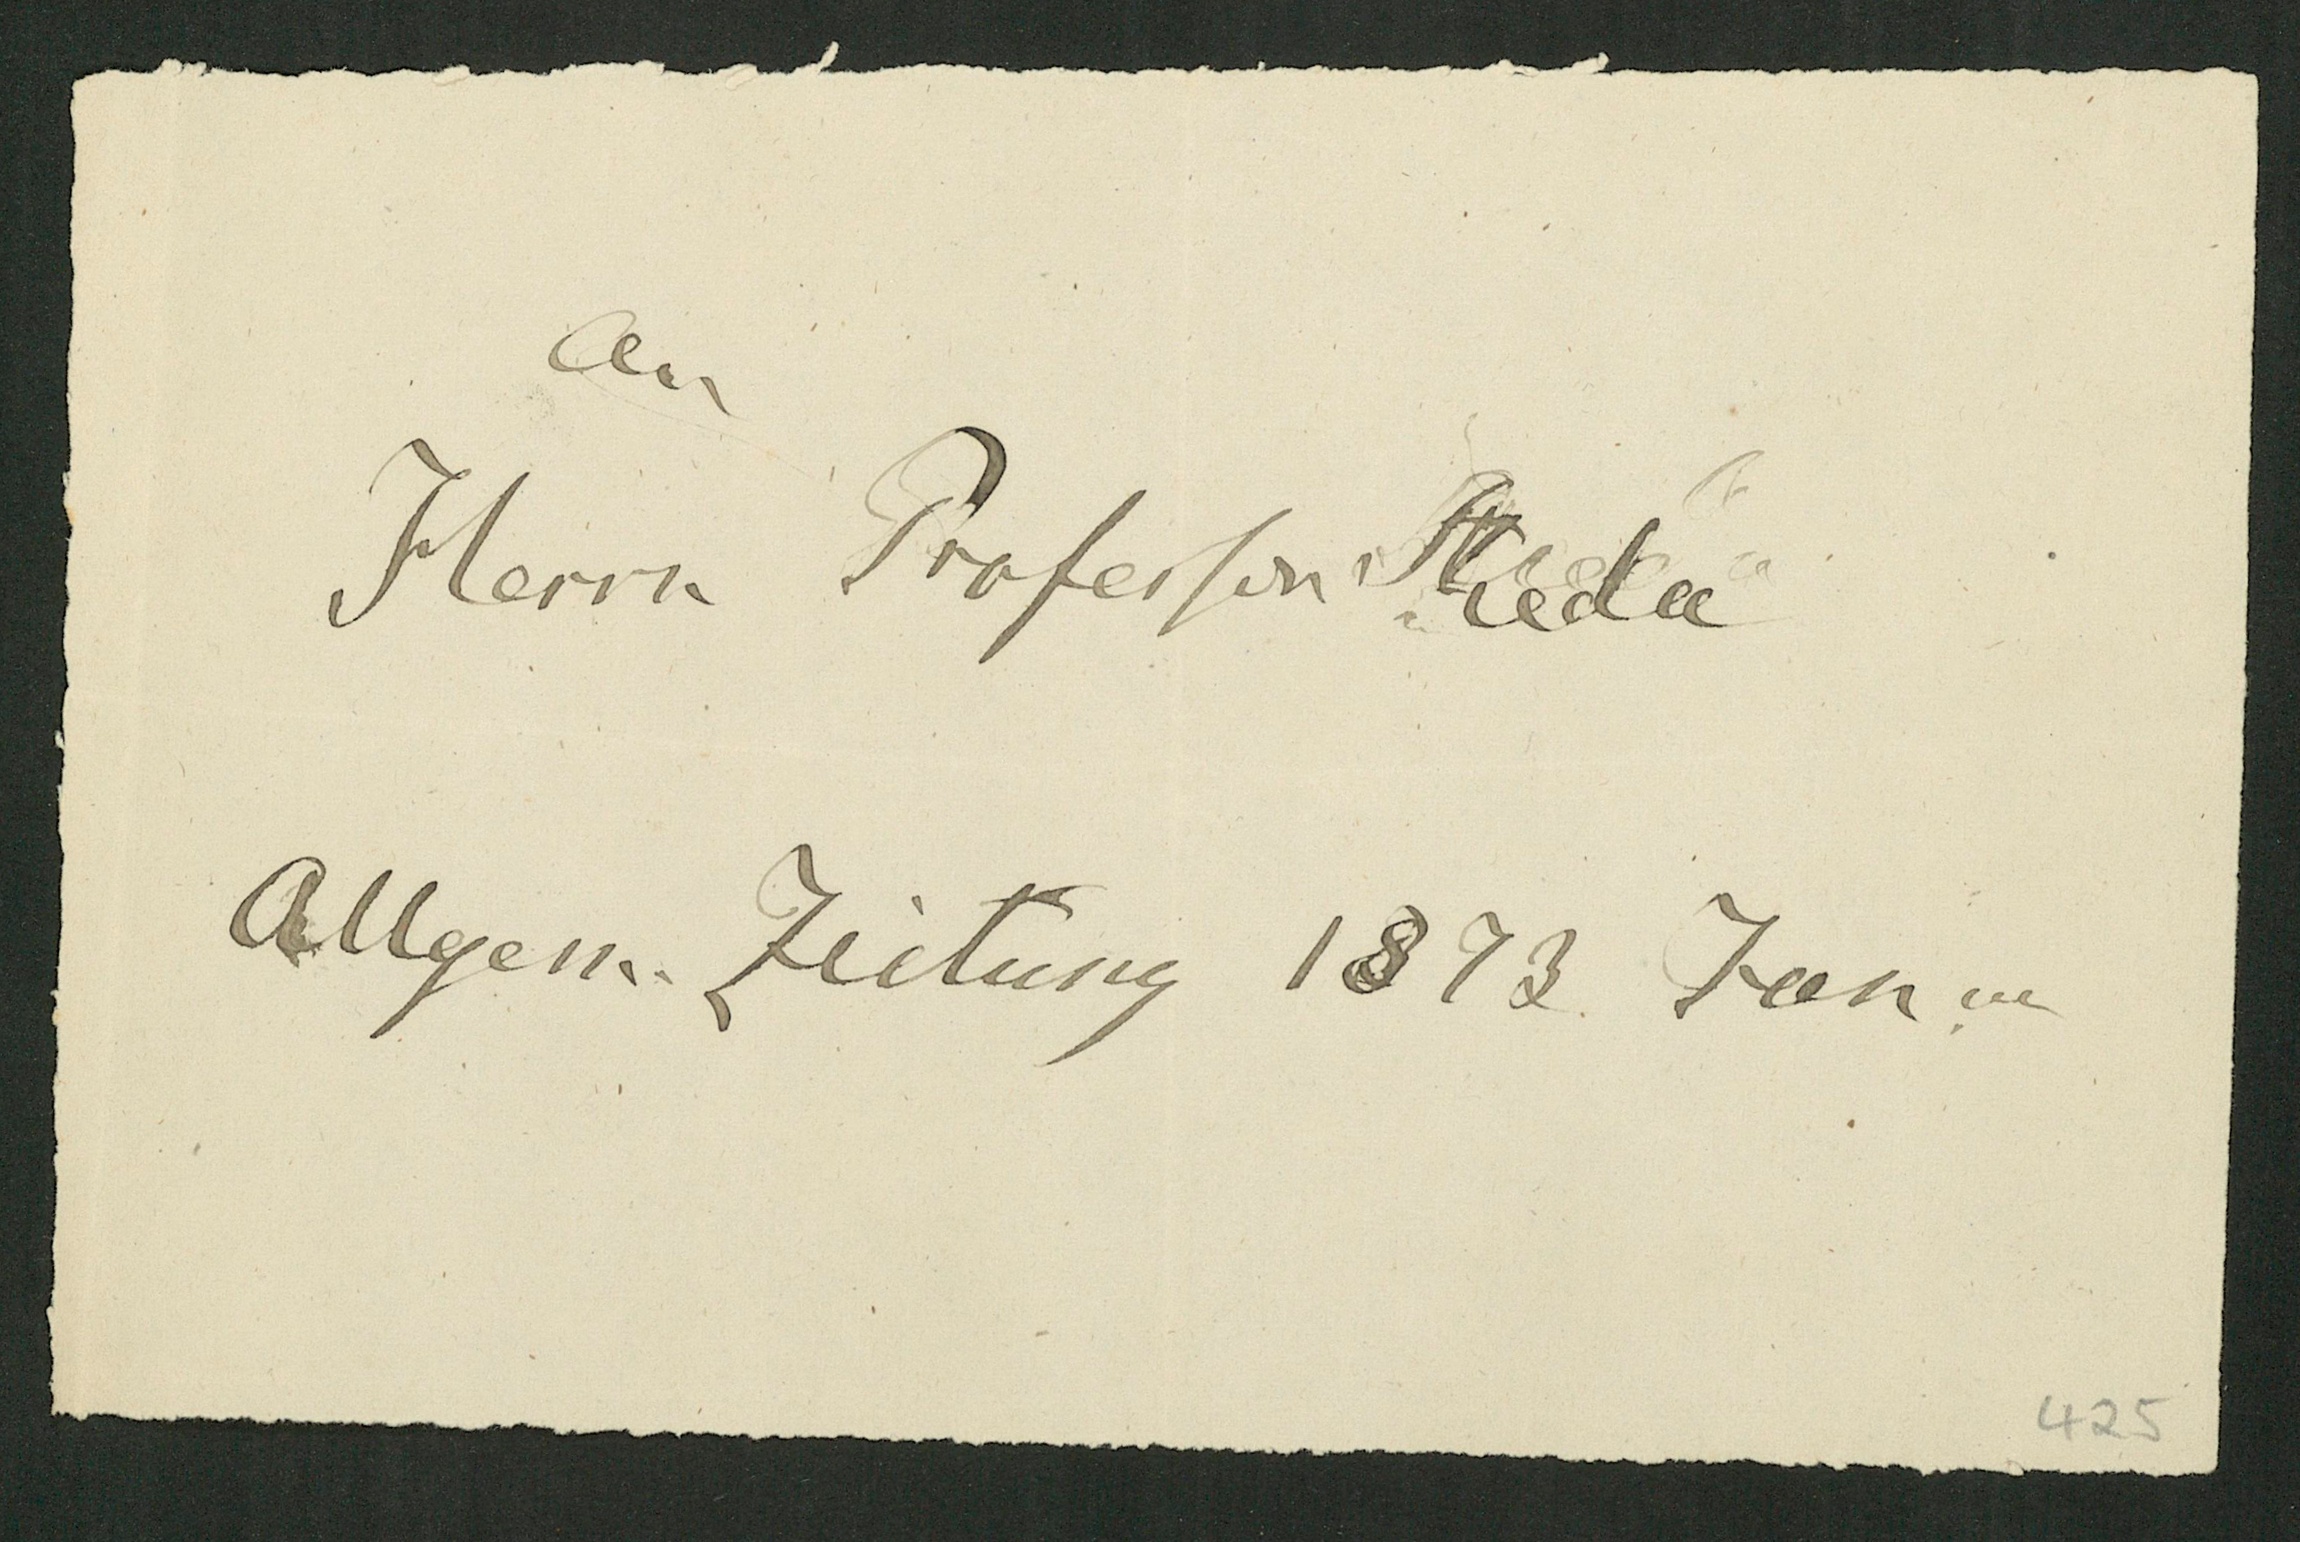 An
Herrn Professor Stieda
Allgem. Zeitung 1873 Jan
425